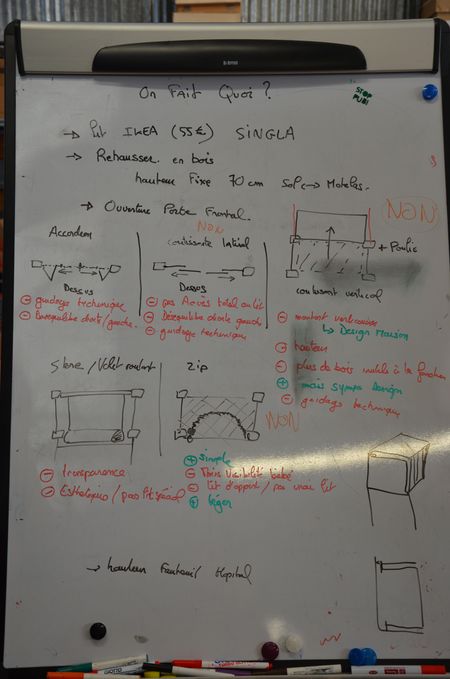 On Fait Quoi ?
STOP PUB!
→ Lit IKEA (55€) SINGLA
→ Rehausser en bois
hauteur Fixe 70 cm Sol ↔ Matelas.
→ Ouverture Porte Frontal.
Accordeon
Dessus
⊖ guidage technique
⊖ droite/gauche.
NON
coulissante latéral
Dessus
⊖ pas Accès total au lit
⊖ Désequilibre droite gauche
⊖ guidage technique
NON
+ Poulie
coulissant vertical
⊖ montant
↳ Design Maison
⊖ hauteur
⊖ plus de bois inutile à la fonction
⊕ mais sympa Design
⊖ guidage technique
Store / Volet roulant
⊖ transparence
⊖ / pas
Zip
NON
⊕ simple
⊖ Moins visibilité bébé
⊖ lit d'appoint / pas vrai lit
⊕ léger
→ hauteur Fauteuil Hopital